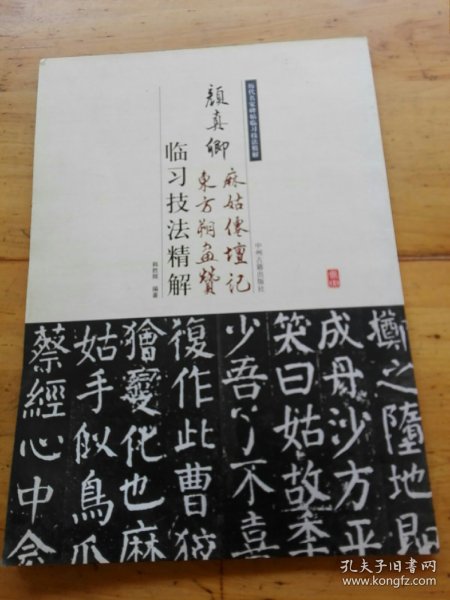 历代名家碑帖临习技法精解
顏真卿
麻姑僊壇記
東方朔畫贊
临习技法精解
编著
中州古籍出版社
擲之墮地即
成丹沙方平
笑曰姑故年
少吾了不喜
復作此曹狡
獪變化也麻
姑手似鳥爪
蔡經心中念
孔夫子旧书网
www.kongfz.com